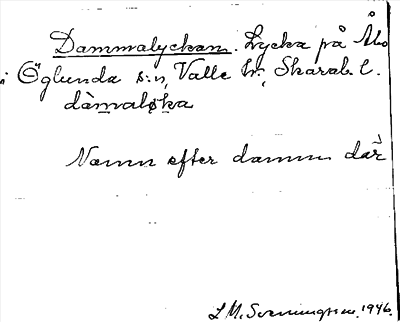 Dammalyckan. Lycka på Åbo
i Öglunda s:n, Valle hr, Skarab. l.
dàmaløka
Namn efter damm där
L M. Svenningsson. 1946.